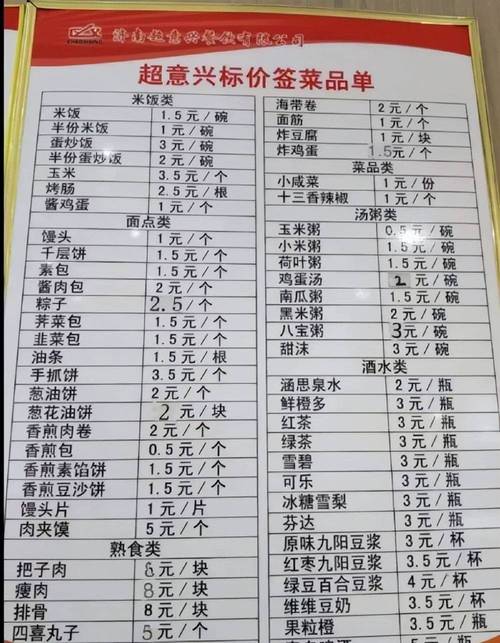 济南超意兴餐饮有限公司
超意兴标价签菜品单
米饭类
米饭 1.5元/碗
半份米饭 1元/碗
蛋炒饭 3元/碗
半份蛋炒饭 2元/碗
玉米 3.5元/个
烤肠 2.5元/根
酱鸡蛋 1元/个
面点类
馒头 1元/个
千层饼 1.5元/个
素包 1.5元/个
酱肉包 2元/个
粽子 2.5/个
荠菜包 1.5元/个
韭菜包 1.5元/个
油条 1.5元/根
手抓饼 3.5元/个
葱油饼 2元/个
葱花油饼 2元/块
香煎肉卷 2元/个
香煎包 0.5元/个
香煎素馅饼 1.5元/个
香煎豆沙饼 1.5元/个
馒头片 1元/片
肉夹馍 5元/个
熟食类
把子肉 元/块
瘦肉 8元/块
排骨 8元/块
四喜丸子 5元/个
海带卷 2元/个
面筋 1元/个
炸豆腐 1元/块
炸鸡蛋 1.5元/个
菜品类
小咸菜 1元/份
十三香辣椒 1元/个
汤粥类
玉米粥 0.5元/碗
小米粥 1.5元/碗
荷叶粥 1.5元/碗
鸡蛋汤 2元/碗
南瓜粥 1.5元/碗
黑米粥 2元/碗
八宝粥 3元/碗
甜沫 3元/碗
酒水类
涵思泉水 2元/瓶
鲜橙多 3元/瓶
红茶 3元/瓶
绿茶 3元/瓶
雪碧 3元/瓶
可乐 3元/瓶
冰糖雪梨 3元/瓶
芬达 3元/瓶
原味九阳豆浆 3元/杯
红枣九阳豆浆 3.5元/杯
绿豆百合豆浆 4元/杯
维维豆奶 3.5元/杯
果粒橙 3.5元/瓶